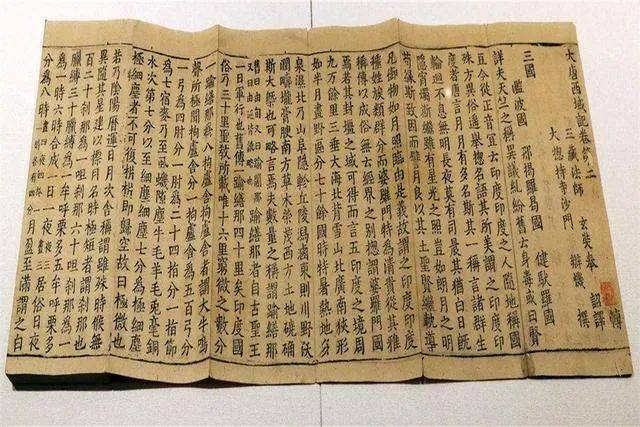 大唐西域記卷第二
三藏法師 玄奘奉 詔譯
大總持寺沙門 辯機 撰
三國
濫波國 那揭羅曷國 健馱羅國
詳夫天竺之稱異議糺紛舊云身毒或曰賢
豆今從正音宜云印度印度之人隨地稱國
殊方異俗遙舉總名語其所美謂之印度印
度者唐言月月有多名斯其一稱言諸群生
輪迴不息無明長夜莫有司晨其猶白日既
隱宵燭斯繼雖有星光之照豈如朗月之明
苟緣斯致因而譬月良以其土聖賢繼軌導
凡御物如月照臨由是義故謂之印度印度
種姓族類群分而婆羅門特為清貴從其雅
稱傳以成俗無云經界之別總謂婆羅門國
焉若其封疆之域可得而言五印度之境周
九万餘里三垂大海北背雪山北廣南狹形
如半月畫野區分七十餘國時特暑熱地多
泉濕北乃山阜隱軫丘陵舄鹵東則川野沃
潤疇壠膏腴南方草木榮茂西方土地磽确
斯大槩也可略言焉夫數量之稱謂踰繕那
踰繕那者自古聖王
一日軍行也舊傳一踰繕那四十里矣印度國
俗乃三十里聖教所載唯十六里窮微之數分一
踰繕那為八拘盧舍拘盧舍者謂大牛鳴
聲所極聞稱拘盧舍分一拘盧舍為五百弓分
一弓為四肘分一肘為二十四指分一指節
為七宿麥乃至虱蟣隙塵牛毛羊毛兔毫銅
水次第七分以至細塵細塵七分為極細塵
極細塵者不可復析析即歸空故曰極微也
若乃陰陽曆運日月次舍稱謂雖殊時候無
異隨其星建以標月名時極短者謂剎那也
百二十剎那為一呾剎那六十呾剎那為一
臘縛三十臘縛為一牟呼栗多五牟呼栗多
為一時六時合成一日一夜夜三晝三居俗日夜
分為八時晝四夜四於一一時各有四分月盈至滿謂之白